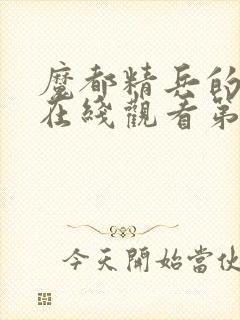 魔都精兵的
在綫觀看第
今天開始當伙